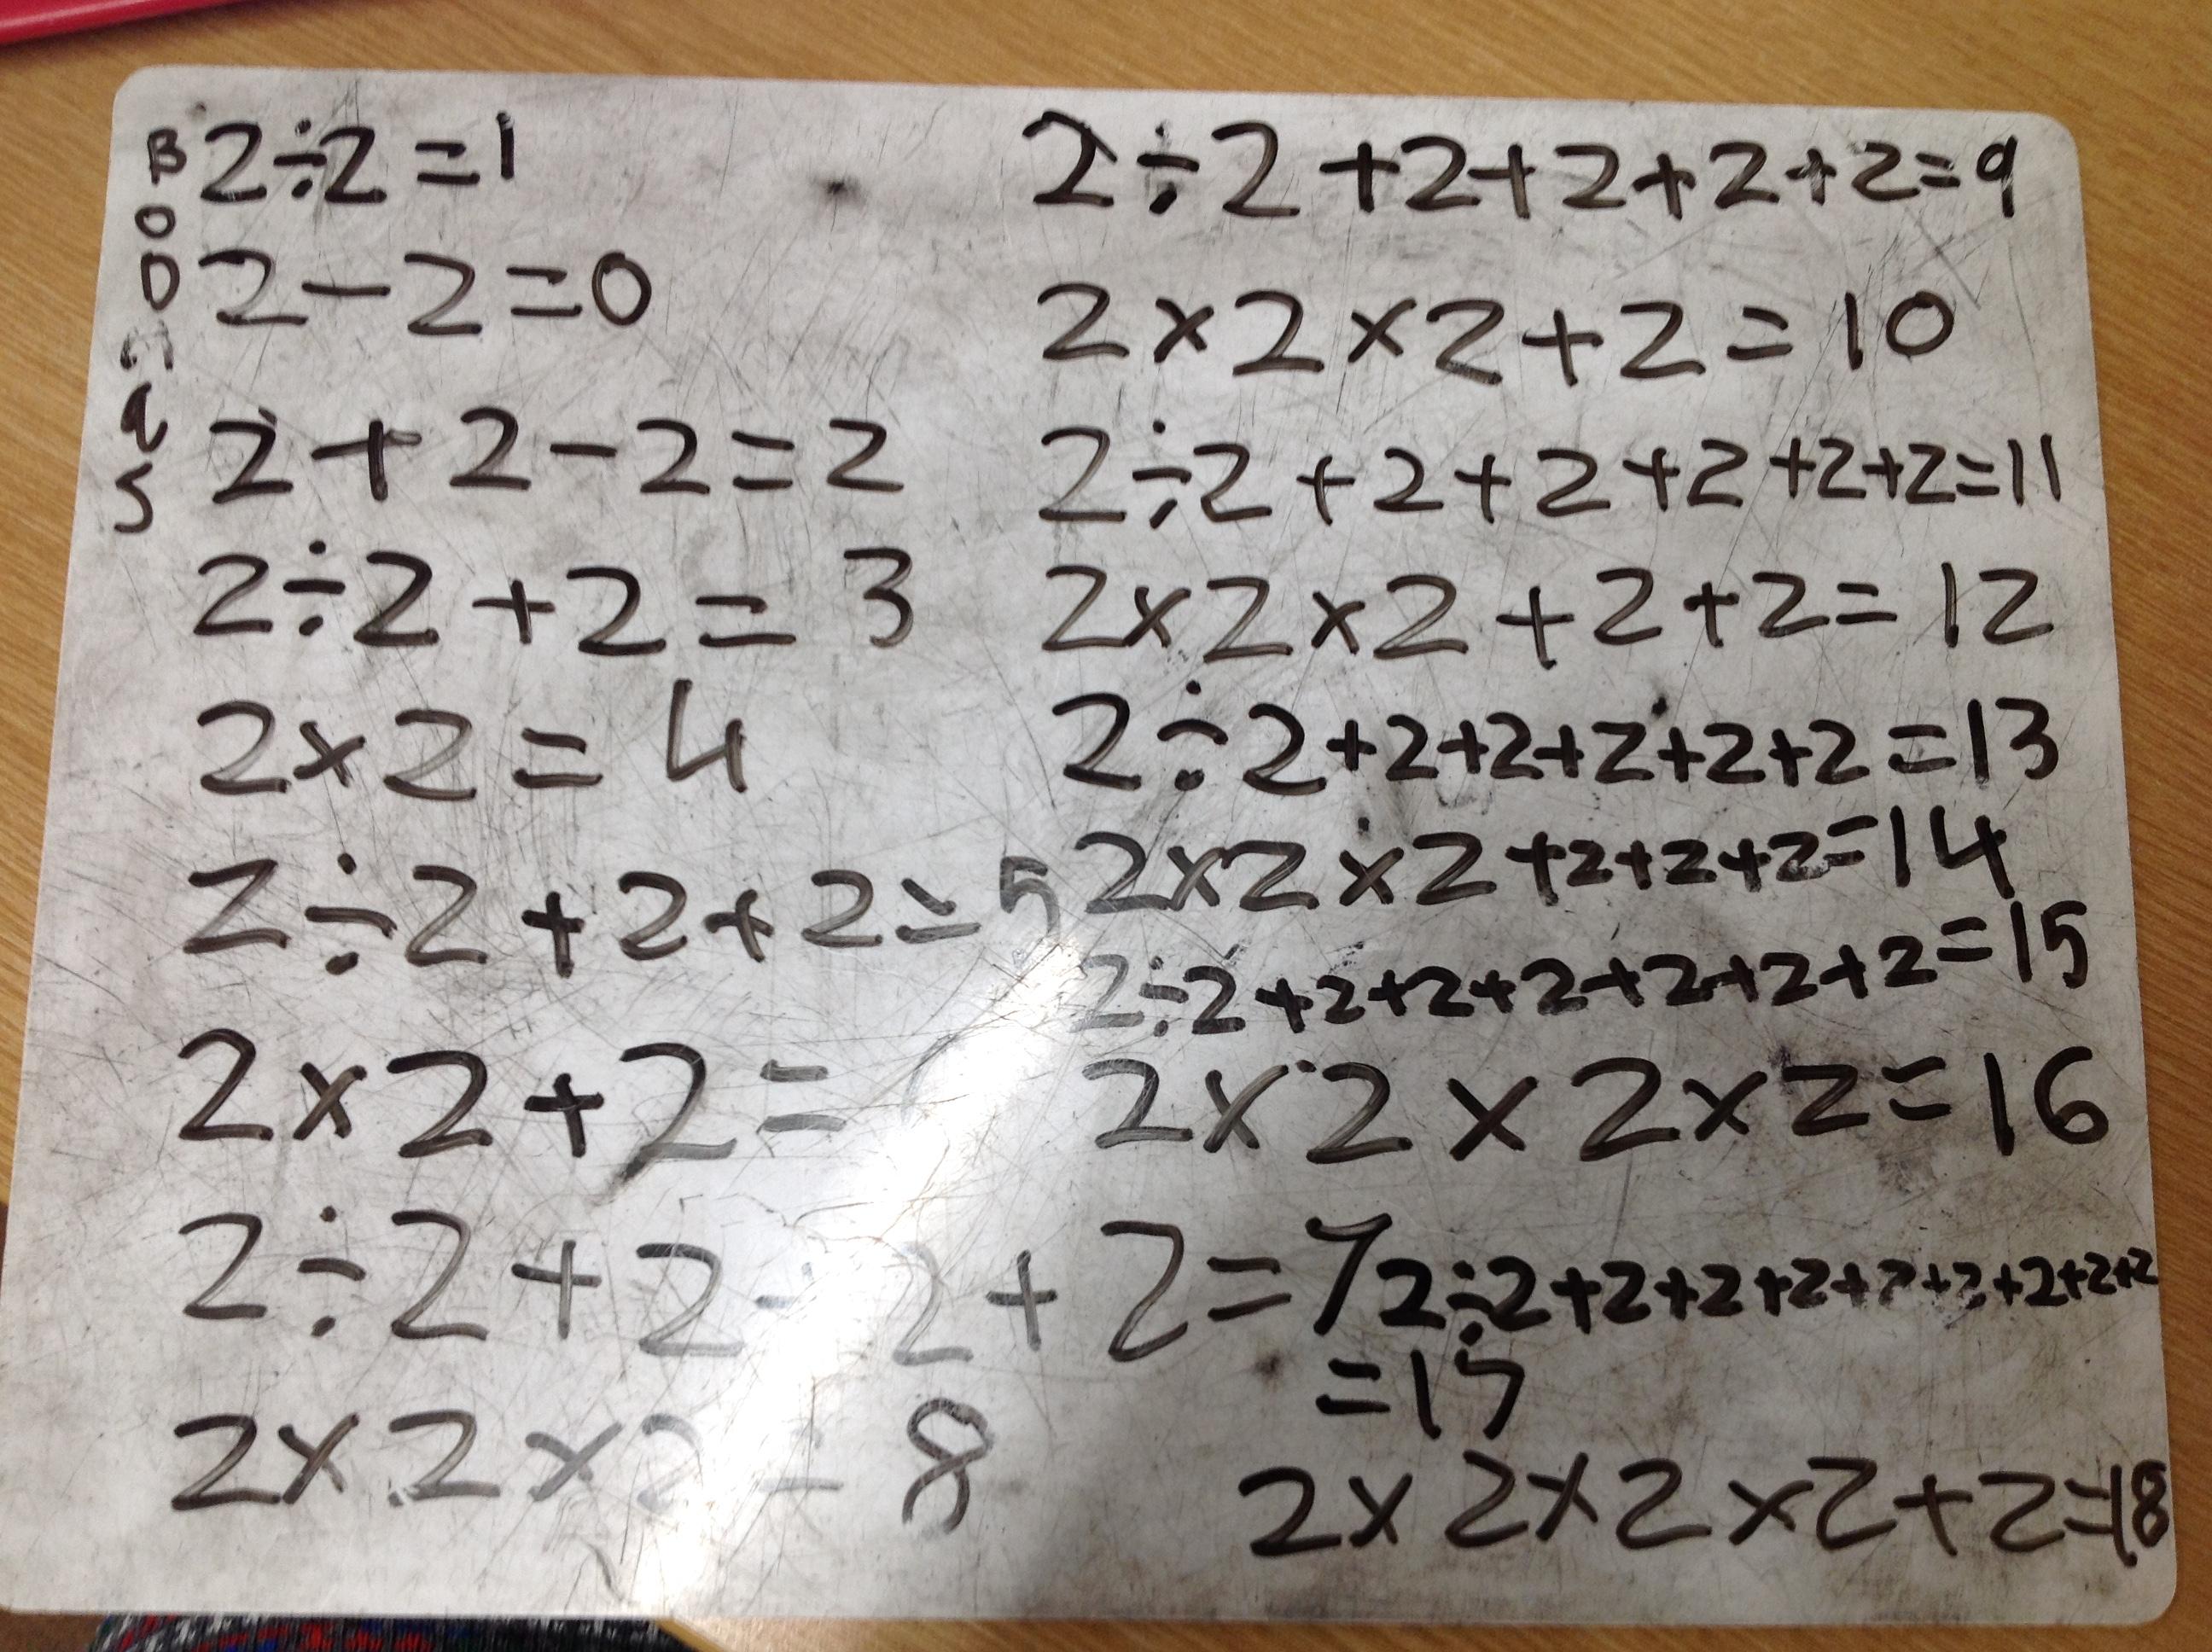 BODMAS
2÷2=1
2-2=0
2+2-2=2
2÷2+2=3
2×2=4
2÷2+2+2=5
2×2+2=
2÷2+2+2+2=7
2×2×2=8
2÷2+2+2+2+2=9
2×2×2+2=10
2÷2+2+2+2+2+2=11
2×2×2+2+2=12
2÷2+2+2+2+2+2=13
2×2×2+2+2+2=14
2÷2+2+2+2+2+2+2=15
2×2×2×2=16
2÷2+2+2+2+2+2+2+2+2
=17
2×2×2×2+2=18